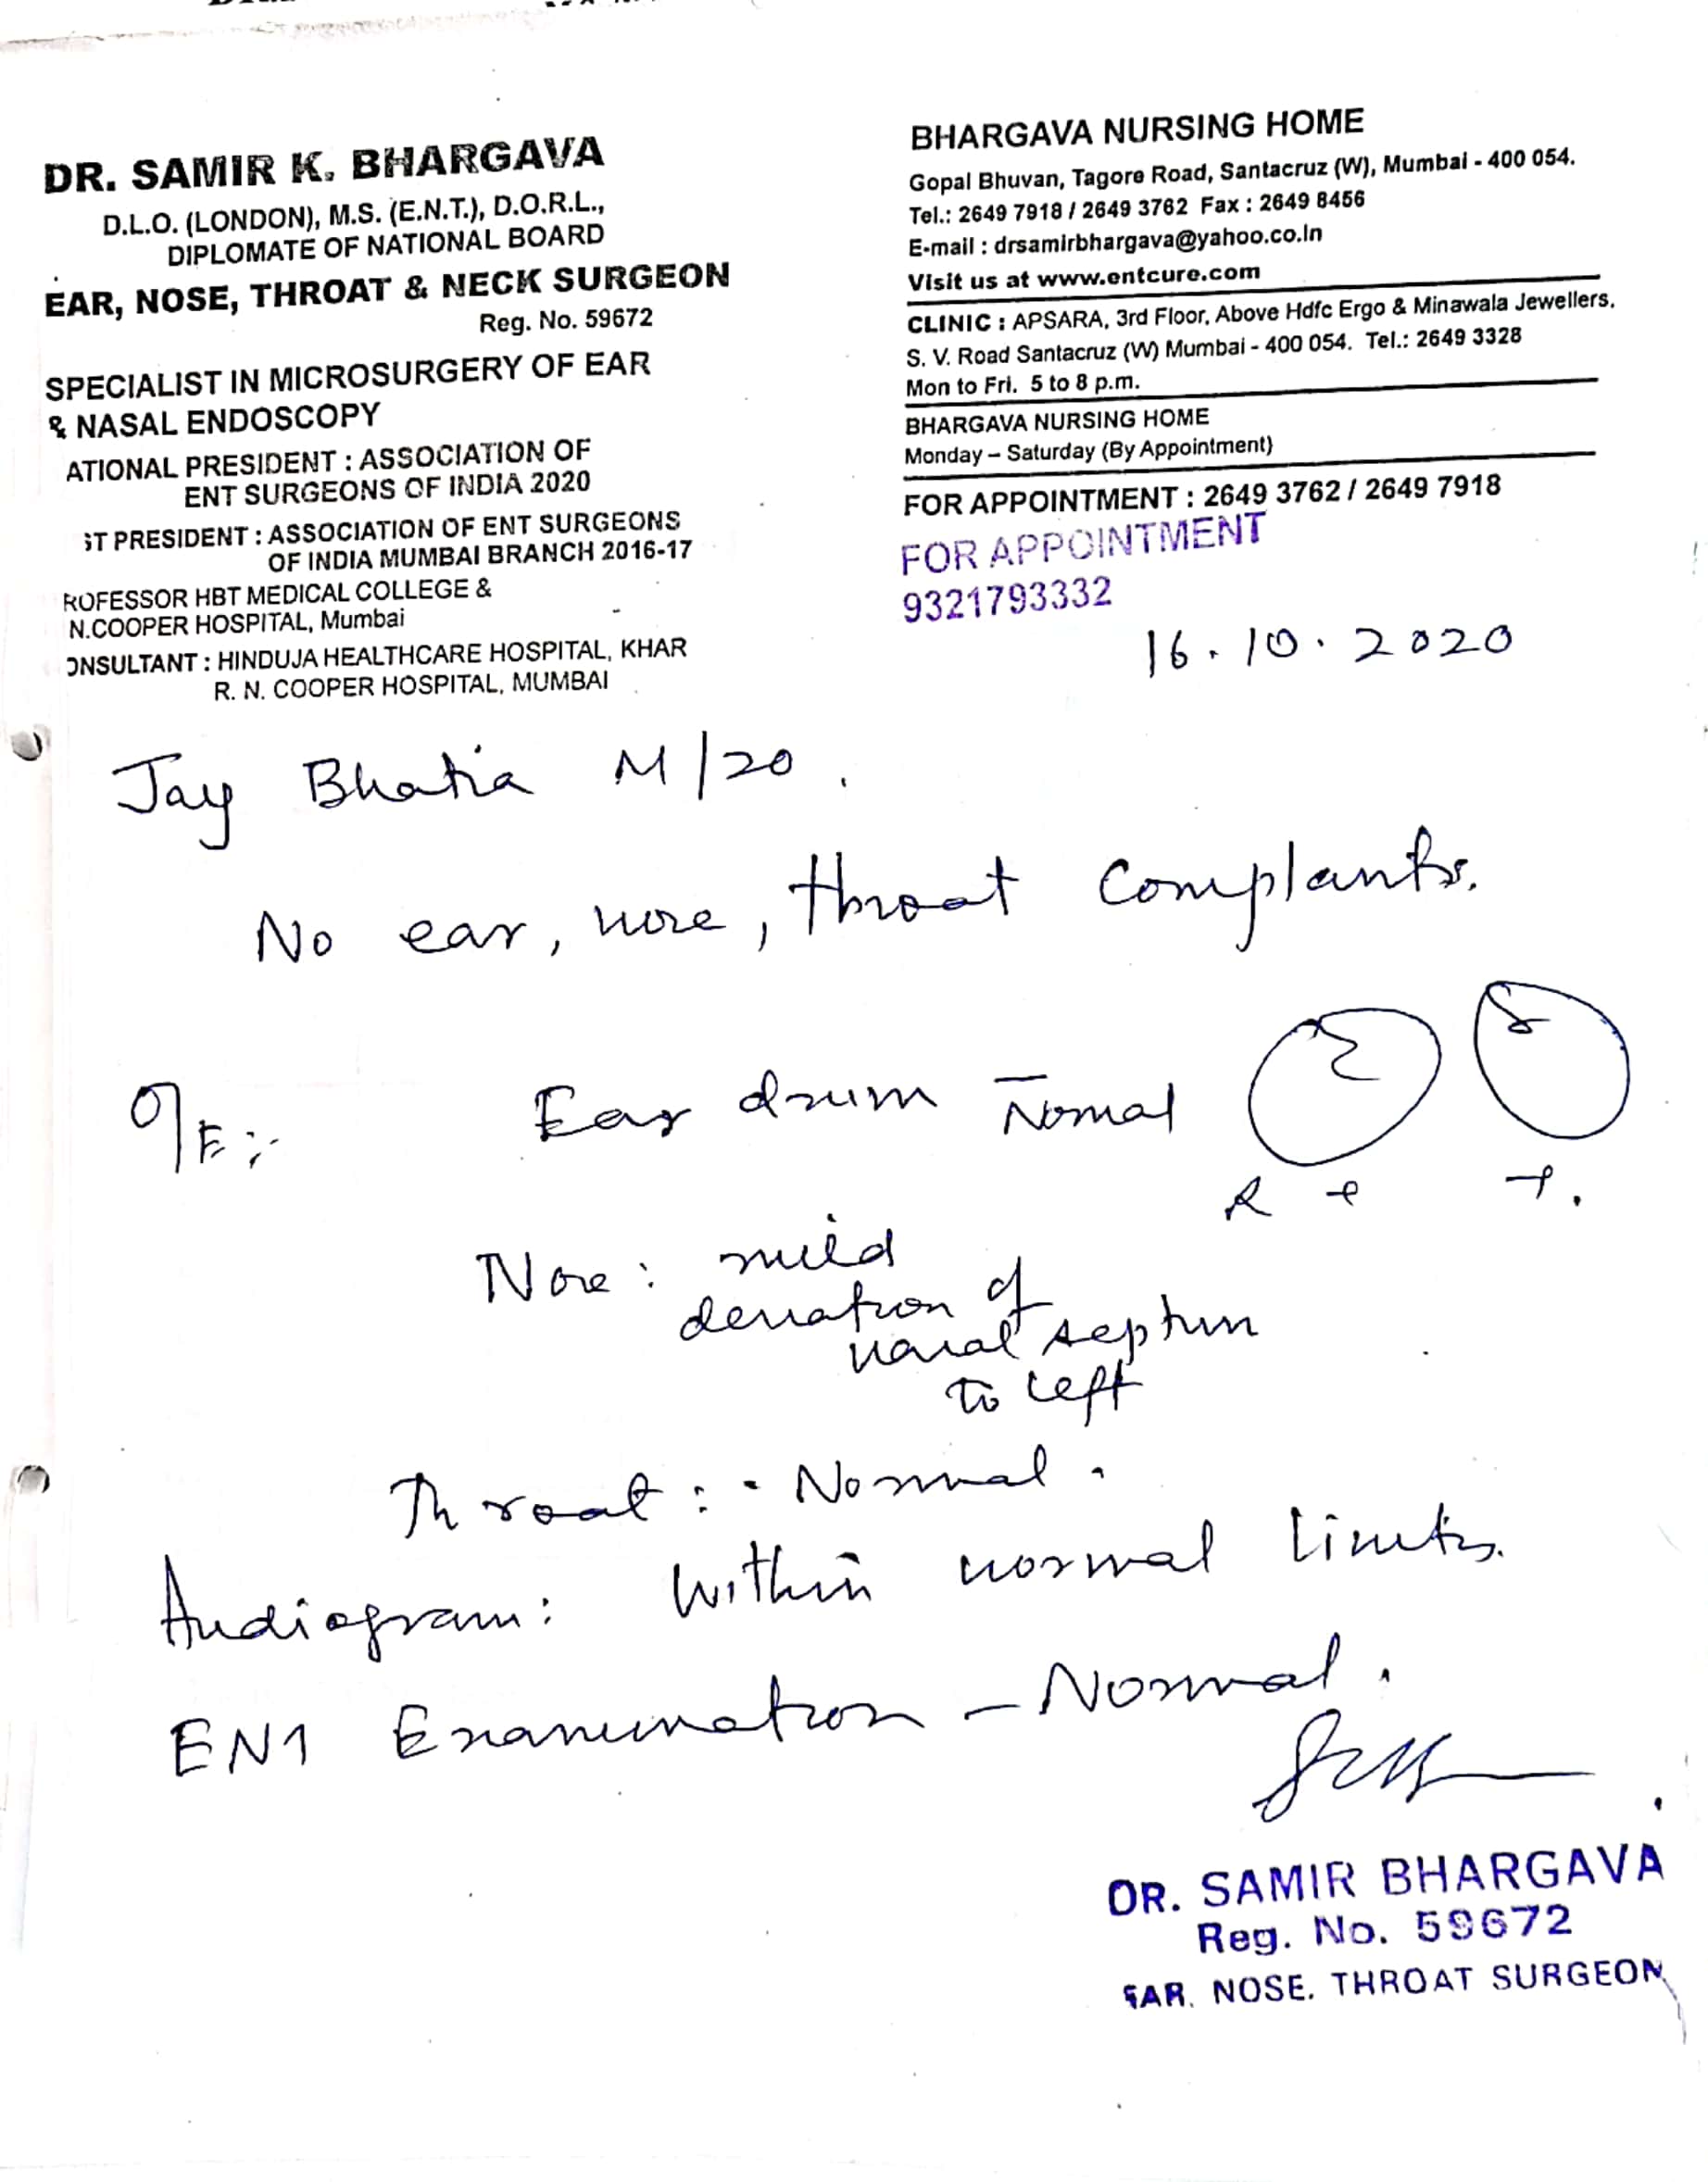 DR. SAMIR K. BHARGAVA
D.L.O. (LONDON), M.S. (E.N.T.), D.O.R.L.,
DIPLOMATE OF NATIONAL BOARD
EAR, NOSE, THROAT & NECK SURGEON
Reg. No. 59672
SPECIALIST IN MICROSURGERY OF EAR
& NASAL ENDOSCOPY
ATIONAL PRESIDENT : ASSOCIATION OF
ENT SURGEONS OF INDIA 2020
ST PRESIDENT : ASSOCIATION OF ENT SURGEONS
OF INDIA MUMBAI BRANCH 2016-17
ROFESSOR HBT MEDICAL COLLEGE &
N.COOPER HOSPITAL, Mumbai
ONSULTANT : HINDUJA HEALTHCARE HOSPITAL, KHAR
R. N. COOPER HOSPITAL, MUMBAI
BHARGAVA NURSING HOME
Gopal Bhuvan, Tagore Road, Santacruz (W), Mumbai - 400 054.
Tel.: 2649 7918 / 2649 3762 Fax : 2649 8456
E-mail : drsamirbhargava@yahoo.co.in
Visit us at www.entcure.com
CLINIC : APSARA, 3rd Floor, Above Hdfc Ergo & Minawala Jewellers.
S. V. Road Santacruz (W) Mumbai - 400 054. Tel.: 2649 3328
Mon to Fri. 5 to 8 p.m.
BHARGAVA NURSING HOME
Monday – Saturday (By Appointment)
FOR APPOINTMENT : 2649 3762 / 2649 7918
FOR APPOINTMENT
9321793332
16.10.2020
Jay Bhatia M/20.
No ear, nose, throat complants.
O/E :-
Ear drum Normal
R
Nose : mild
deviation of
nasal septum
to left
Throat : - Normal.
Audiogram : Within normal limits.
ENT Examination - Normal.
DR. SAMIR BHARGAVA
Reg. No. 59672
EAR. NOSE. THROAT SURGEON